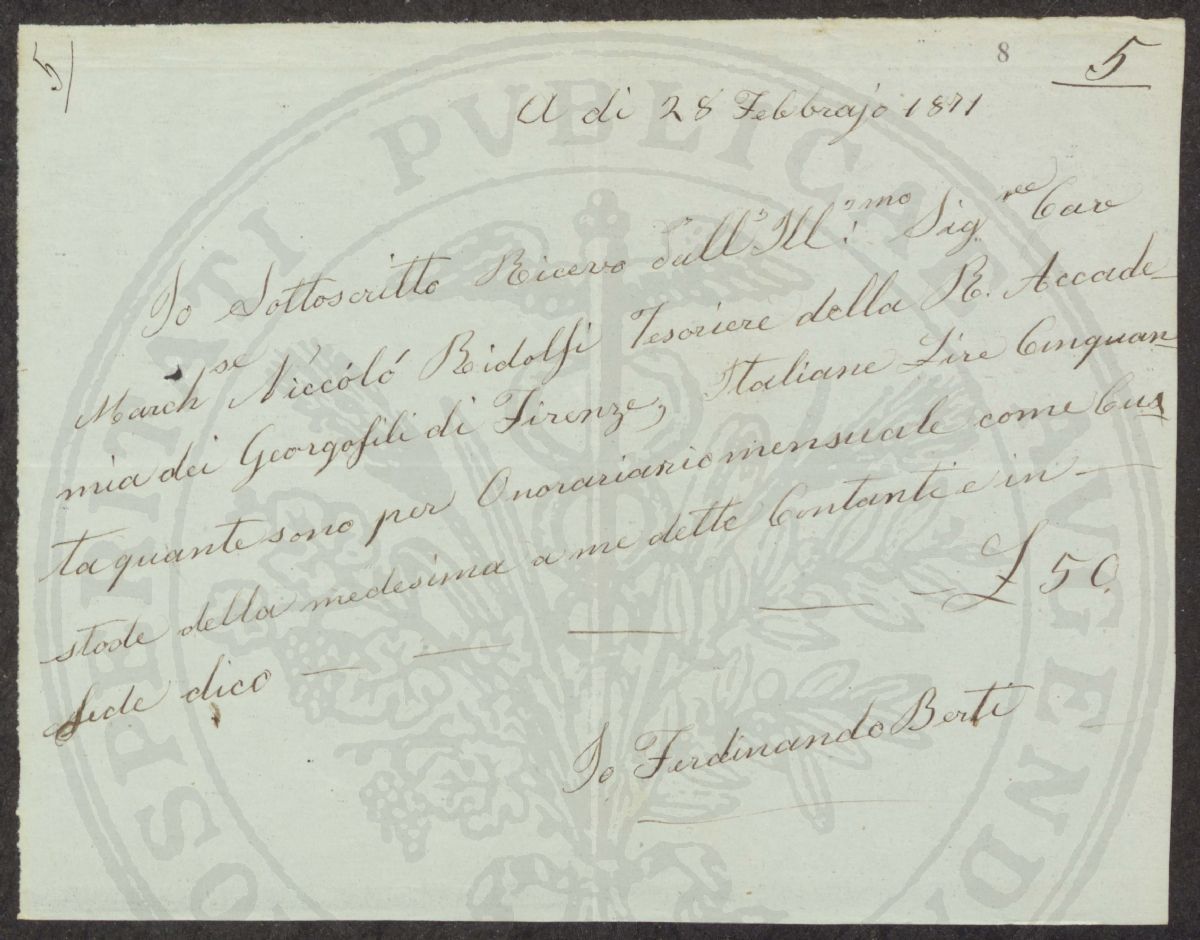 5)
8
5
A di 28 Febbrajo 1871
Io Sottoscritto Ricevo dall' Ill:mo Sig.re Cav
March.se Niccóló Ridolfi Tesoriere della R. Accade-
mia dei Georgofili di Firenze, Italiane Lire Cinquan-
ta quante sono per Onorarianio mensuale come Cus-
stode della medesima a me dette Contanti e in -
fede dico — — — — - £ 50.
Io Ferdinando Berti
PROSPERITATI PVBLICAE AVGENDAE